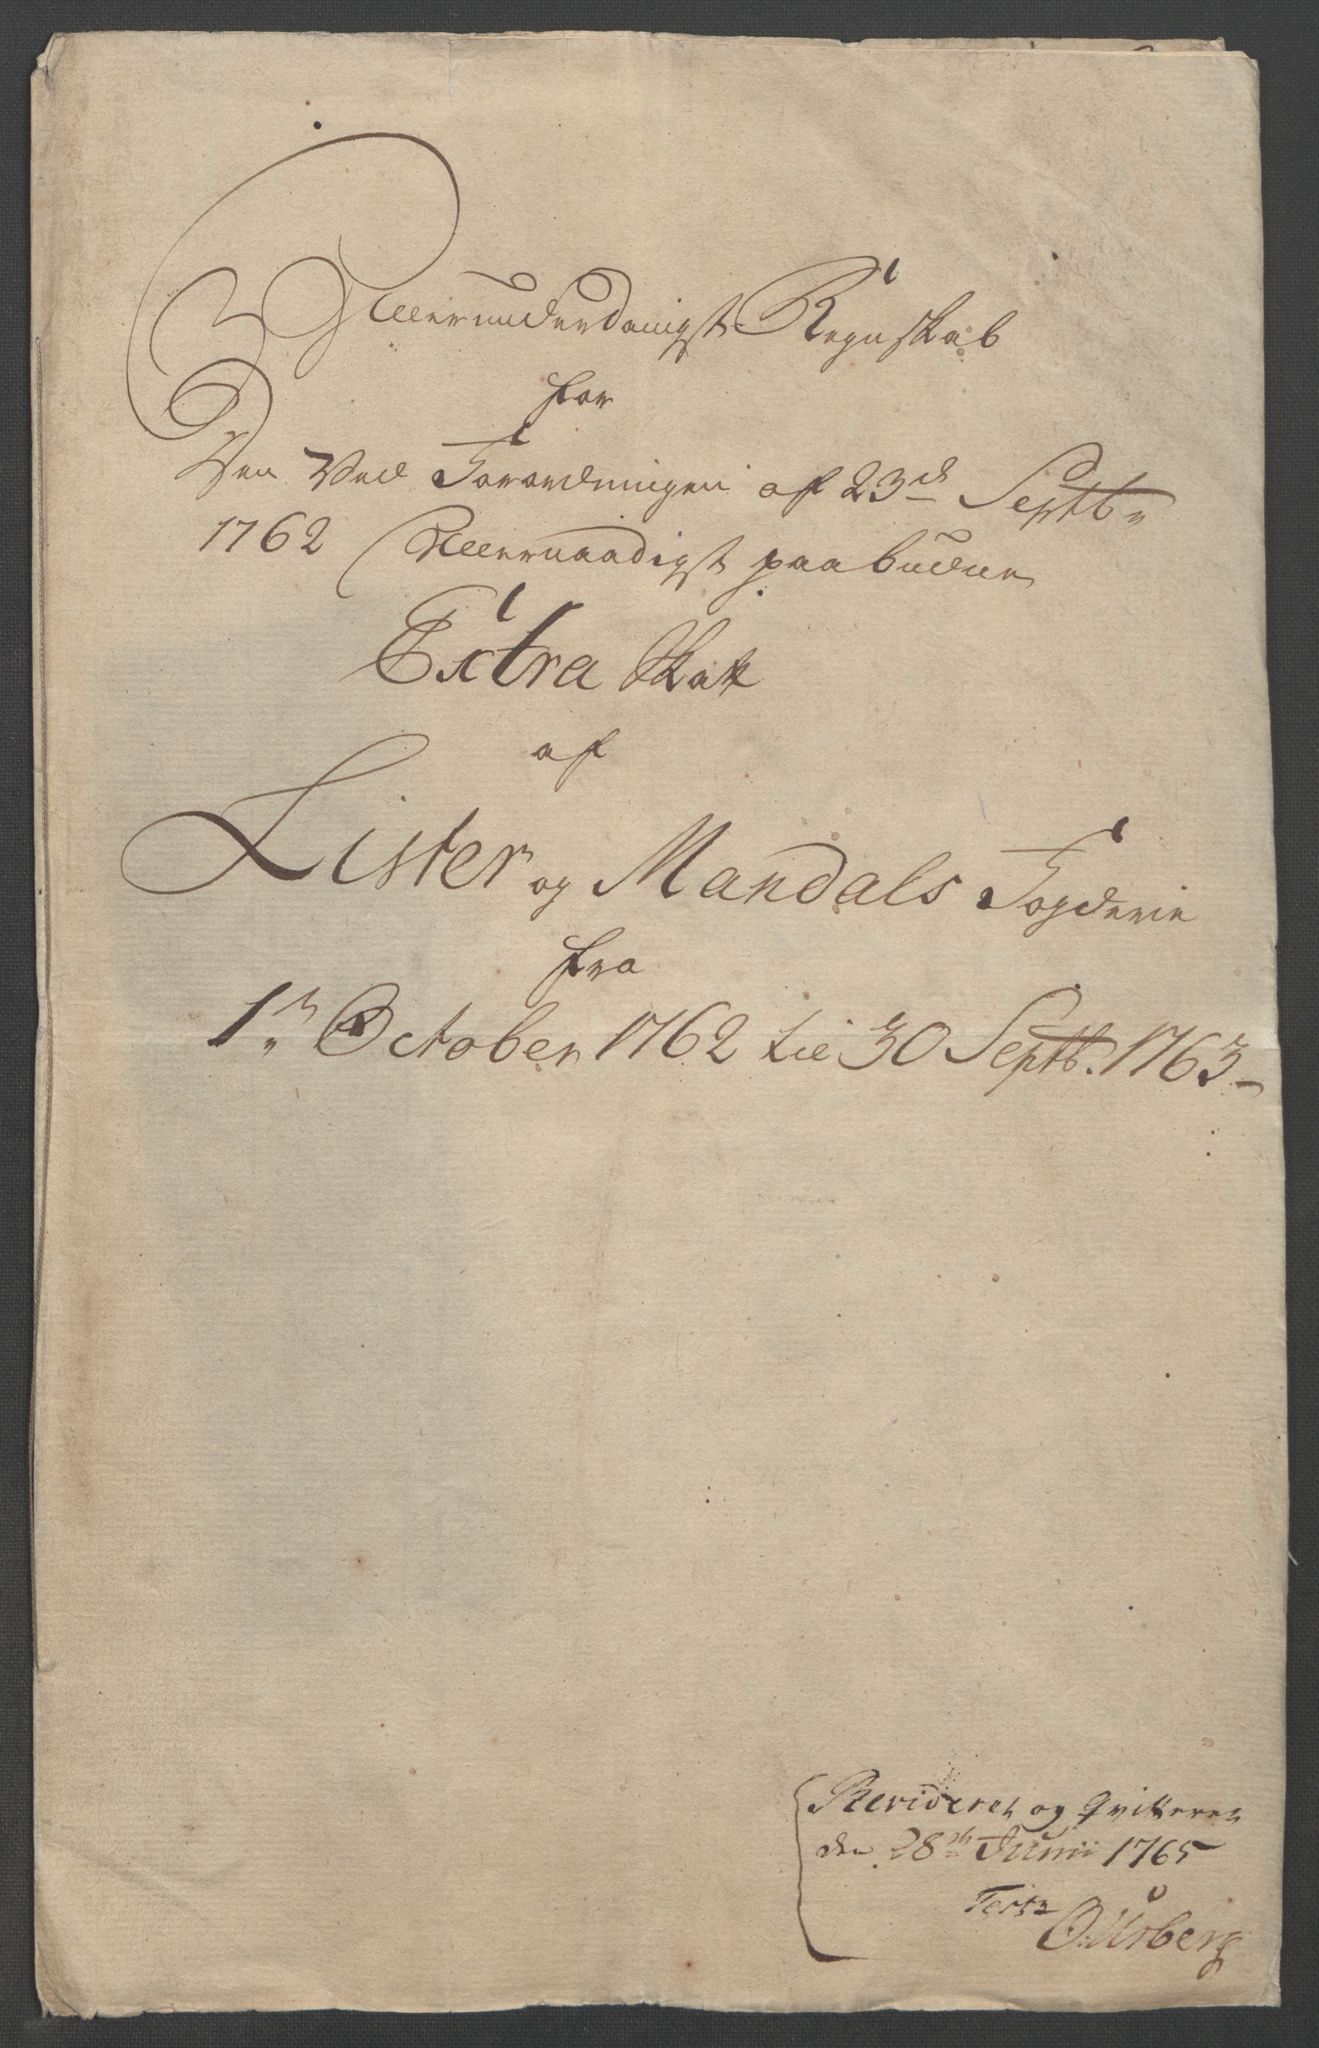 Allerunderdanigst Regnskab
for
Den Ved Forordningen af 23de Septbr
1762 Allernaadigst paabudne
Extra Skatt
af
Lister og Mandals Fogderie
fra
1te October 1762 til 30 Septb. 1763
Revideret og Qvitteret
den 28de Junii 1765
Test